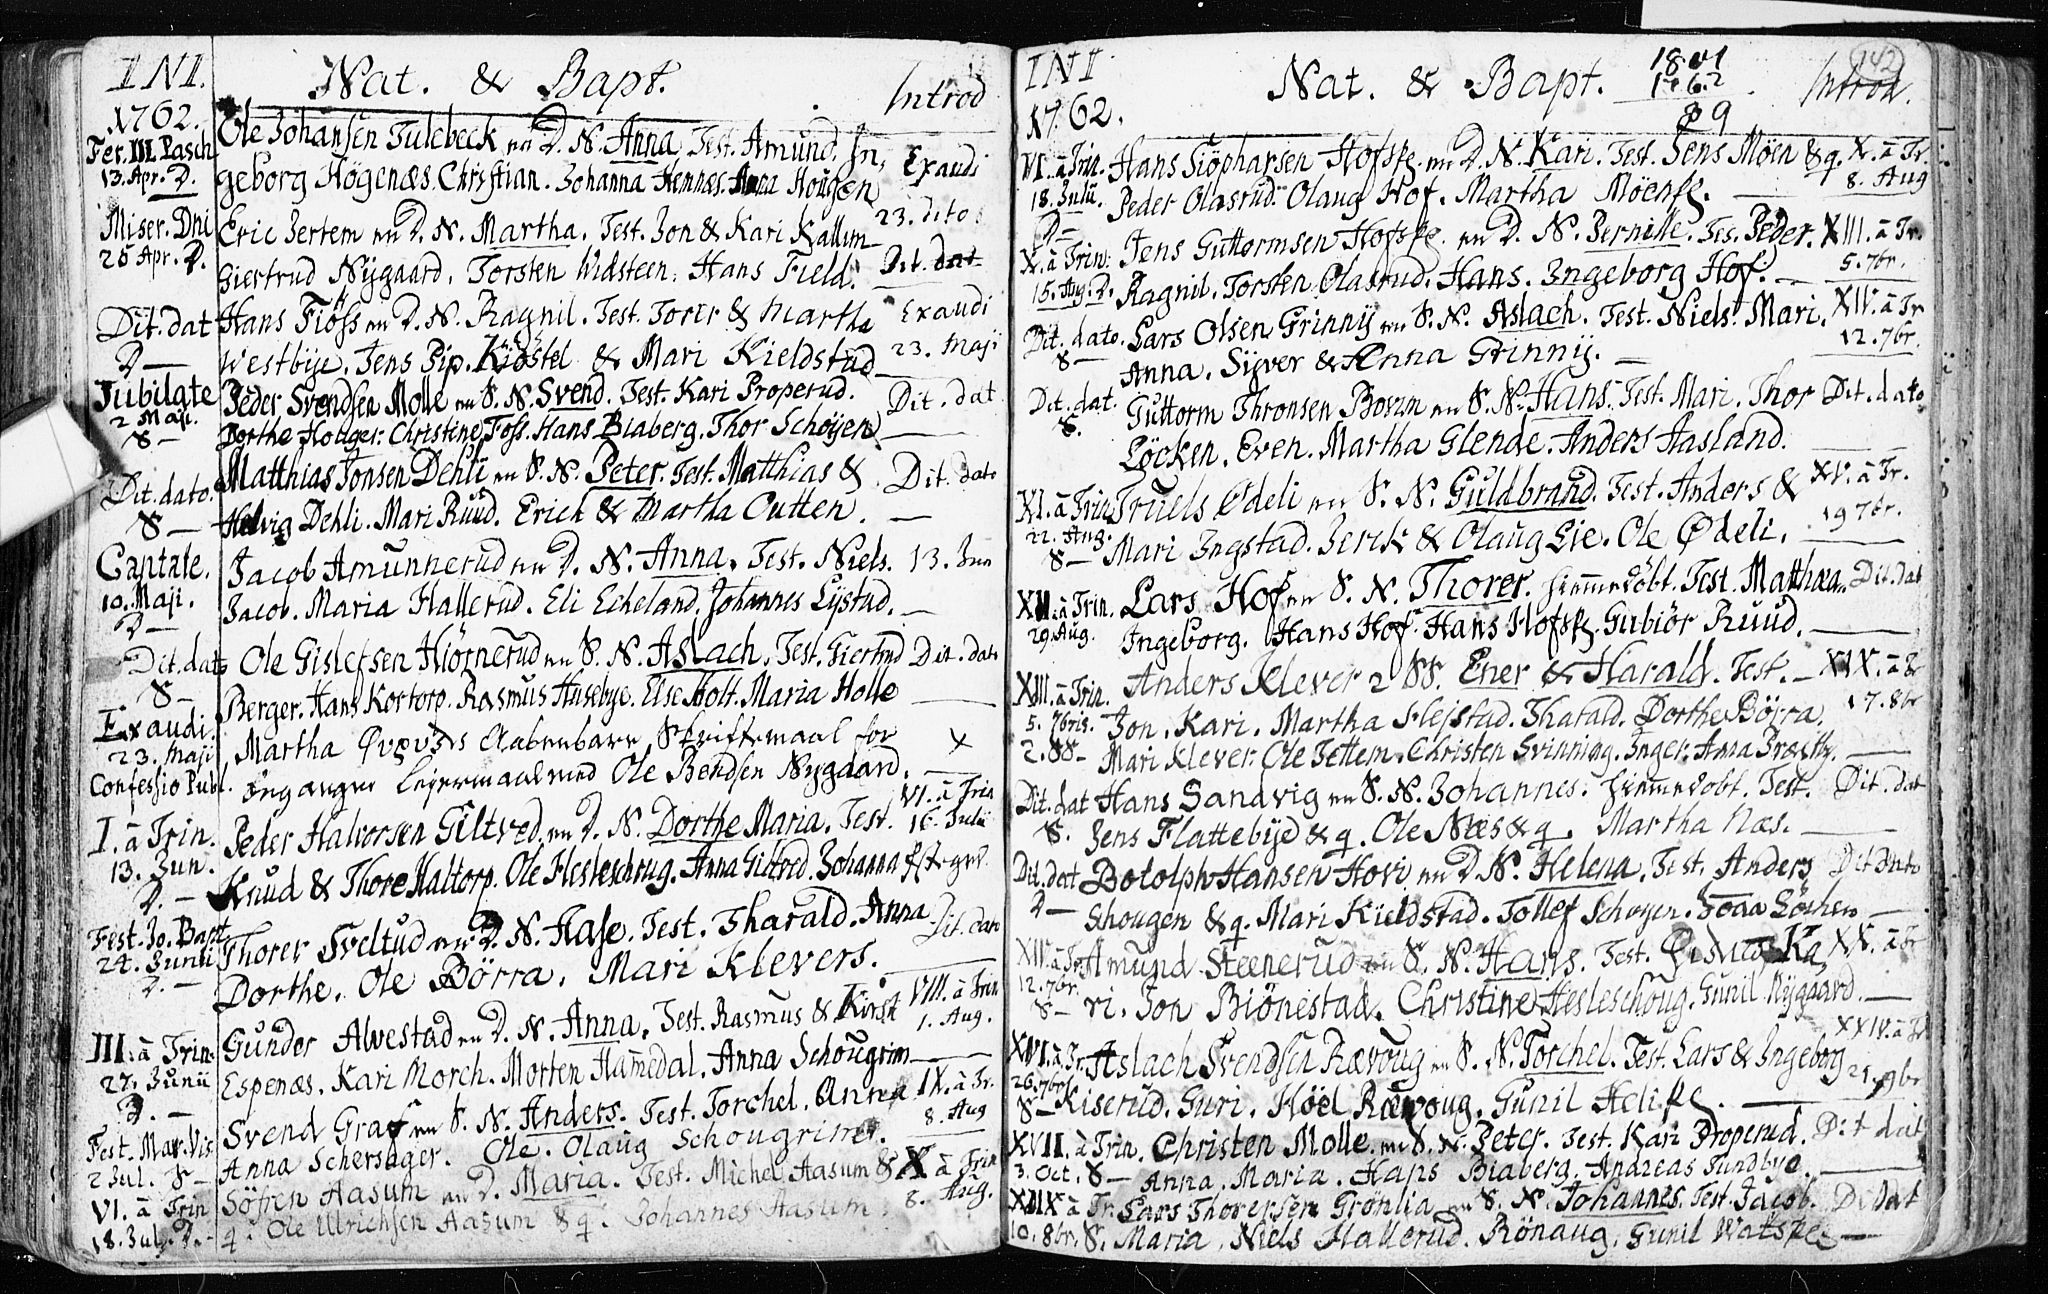 INI.
Nat. & Bapt.
Introd
1762.
Fer. III. Pasch
13. Apr. D.
Ole Johansen Tulebeck en D. N. Anna. Test. Amund. In,
geborg Högenæs. Christian. Johanna Hennæs. Anna Hougen
Exaudi
23. dito
Miser. Dni
25 Apr. D.
Eric Jertem en D. N. Martha. Test. Jon & Kari Kallum
Giertrud Nygaard. Torsten Widsteen. Hans Field.
Dit. dat
Dit. dat
D —
Hans Fiöss en D. N. Ragnil. Test. Torer & Martha
Westbye. Jens Pip. Kiöstel & Mari Kieldstad
Exaudi
23. Maji
Jubilate
2 Maji.
S —
Peder Svendsen Molle en S. N. Svend. Test. Kari Properud.
Dorthe Houger. Christine Foss. Hans Biaberg. Thor Schöyen
Dit. dat
Dit. dato.
S —
Matthias Jonsen Dehli en S. N. Peter. Test. Matthias &
Helvig Dehli. Mari Ruud. Erich & Martha Outten.
Dit. dato
Cantate.
10. Maji.
D —
Jacob Amunnerud en D. N. Anna. Test. Niels.
Jacob. Maria Hallerud. Eli Echeland. Johannes Lystad.
13. Jun
Dit. dato
S —
Ole Gislefsen Hiörnerud en S. N. Aslach. Test. Giertrud
Berger. Hans Kortorp. Rasmus Husebye. Else Holt. Maria Holle
Dit. dato
Exaudi.
23. Maji
Confessio Publ.
Martha Aabenbare Skriftemaal for
Leiermaal med Ole Bendsen Nygaard.
x
I. à Trin.
13. Jun.
D. —
Peder Halvorsen Giltved en D. N. Dorthe Maria. Test.
Knud & Thore Haltorp. Ole Flesleschrug. Anna Giltved. Johanna
VI. à Trin
16. Julii
Fest. Jo. Bapt
24. Junii
D. —
Thorer Sveltud en D. N. Hase. Test. Tharald. Anna
Dorthe. Ole Börra. Mari Klevers.
Dit. dato
III. à Trin.
27. Junii
D. —
Gunder Alvestad en D. N. Anna. Test. Rasmus & Kirst
Espenæs. Kari Morch. Morten Hamedal. Anna Schougrim
VIII. à Trin
1. Aug.
Fest. Mar. Vis
2 Jul. S —
Svend Graf en S. N. Anders. Test. Torchel. Anna
Anna Schersager. Ole. Olaug Schougrimer.
IX. à Tr.
8. Aug
VI. à Trin
18. Jul. D. —
Söfren Aasum en D. Maria. Test. Michel Aasum &
q. Ole Ulrichsen Aasum & q. Johannes Aasum
X à Trin
8. Aug.
INI
Nat. & Bapt.
1801
1762
89
142
Introd.
1762.
VI. à Trin.
18. Julii.
D —
Hans Siöpharsen Hofspe. en D. N. Kari. Test. Jens Möen & q.
Peder Olasrud. Olaug Hof. Martha Möenspe.
X. à Tr.
8. Aug
X. à Trin.
15. Aug. D.
Jens Guttormsen Hofspe. en D. N. Pernille. Tes. Peder.
Ragnil. Torsten Olasrud. Hans. Ingeborg Hof.
XIII. à Tr.
5. 7br.
Dit. dato.
S —
Lars Olsen Grinnij en S. N. Aslach. Test. Niels. Mari.
Anna. Syver & Anna Grinnij.
XIV. à Tr
12. 7br.
Dit. dat.
S.
Guttorm Thronsen Boven en S. N. Hans. Test. Mari. Thor
Löcken. Even. Martha Glende. Anders Aasland.
Dit. dato
XI. à Trin
22. Aug.
S —
Truels Ödeli en S. N. Guldbrand. Test. Anders &
Mari Ingstad. Jerck & Olaug Lie. Ole Ödeli.
XV. à Tr.
19 7br.
XII. à Trin.
29. Aug.
Lars Hof en S. N. Thorer. hiemmedöbt. Test. Matthæa.
Ingeborg. Hans Hof. Hans Hofspe. Gubiör Ruud.
Dit. dat
XIII. à Trin.
5. 7bris.
2. SS —
Anders Klever 2 SS. Ener & Harald. Test. —
Jon. Kari. Martha Flejstad. Tharald. Dorthe Börra.
Mari Klever. Ole Tettem. Christen Svinning. Inger. Anna Præsthy.
XIX. à Tr
17. 8br
Dit. dat
S.
Hans Sandvig en S. N. Johannes. hiemmedöbt. Test.
Jens Flattebye & q. Ole Næs & q. Martha Næs.
Dit. dat
Dit. dat
D —
Botolph Hansen Hovi en D. N. Helena. Test. Anders
Schougen & q. Mari Kieldstad. Tollef Schoyen. Löchen
Dit dato
XIV. à Tr
12. 7br.
S —
Amund Steenerud en S. N. Hans. Test. Ka
ri. Jon Biönestad. Christine Hesleschoug. Gunil Nygaard.
XX. à Tr
XVI. à Tr.
26. 7br
S —
Aslach Svendsen Rævoug en S. N. Torchel. Test. Lars & Ingeborg
Kiserud. Guri. Höel Rævoug. Gunil Helispe.
XXIV. à Tr
21. 9br
XVII. à Trin.
3. Oct. S —
Christen Molle en S. N. Peter. Test. Kari Properud.
Anna. Maria. Hans Biaberg. Andreas Tundbye.
Dit dat
XIIX à Tr.
10. 8br. S.
Lars Thoresen Grönlia en S. N. Johannes. Test. Jacob.
Maria. Niels Hallerud. Rönaug. Gunil Watspe
Di. dat